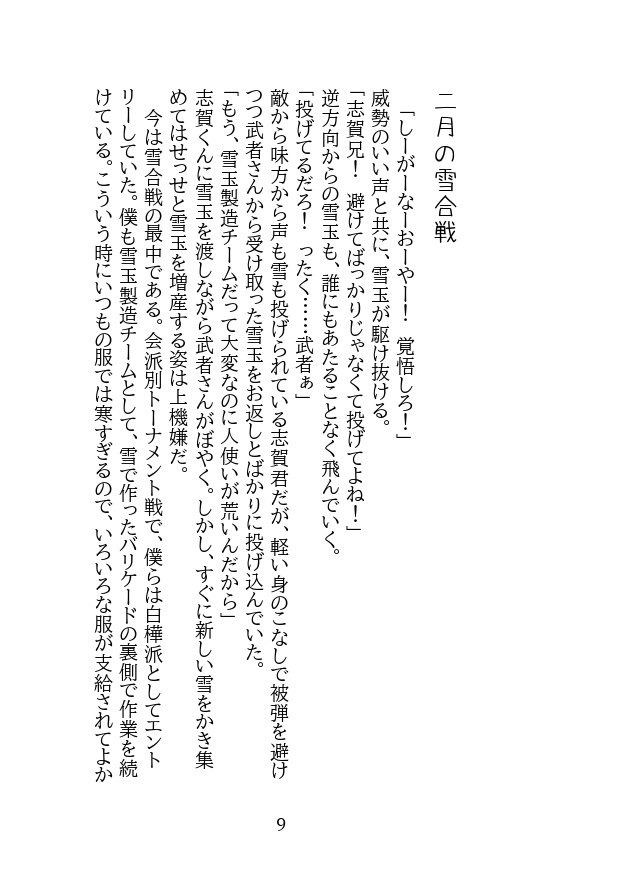 二月の雪合戦
「しーがーなーおーやー！　覚悟しろ！」
威勢のいい声と共に、雪玉が駆け抜ける。
「志賀兄！　避けてばっかりじゃなくて投げてよね！」
逆方向からの雪玉も、誰にもあたることなく飛んでいく。
「投げてるだろ！　ったく……武者ぁ」
敵から味方から声も雪も投げられている志賀君だが、軽い身のこなしで被弾を避け
つつ武者さんから受け取った雪玉をお返しとばかりに投げ込んでいた。
「もう、雪玉製造チームだって大変なのに人使いが荒いんだから」
志賀くんに雪玉を渡しながら武者さんがぼやく。しかし、すぐに新しい雪をかき集
めてはせっせと雪玉を増産する姿は上機嫌だ。
今は雪合戦の最中である。会派別トーナメント戦で、僕らは白樺派としてエント
リーしていた。僕も雪玉製造チームとして、雪で作ったバリケードの裏側で作業を続
けている。こういう時にいつもの服では寒すぎるので、いろいろな服が支給されてよか
9